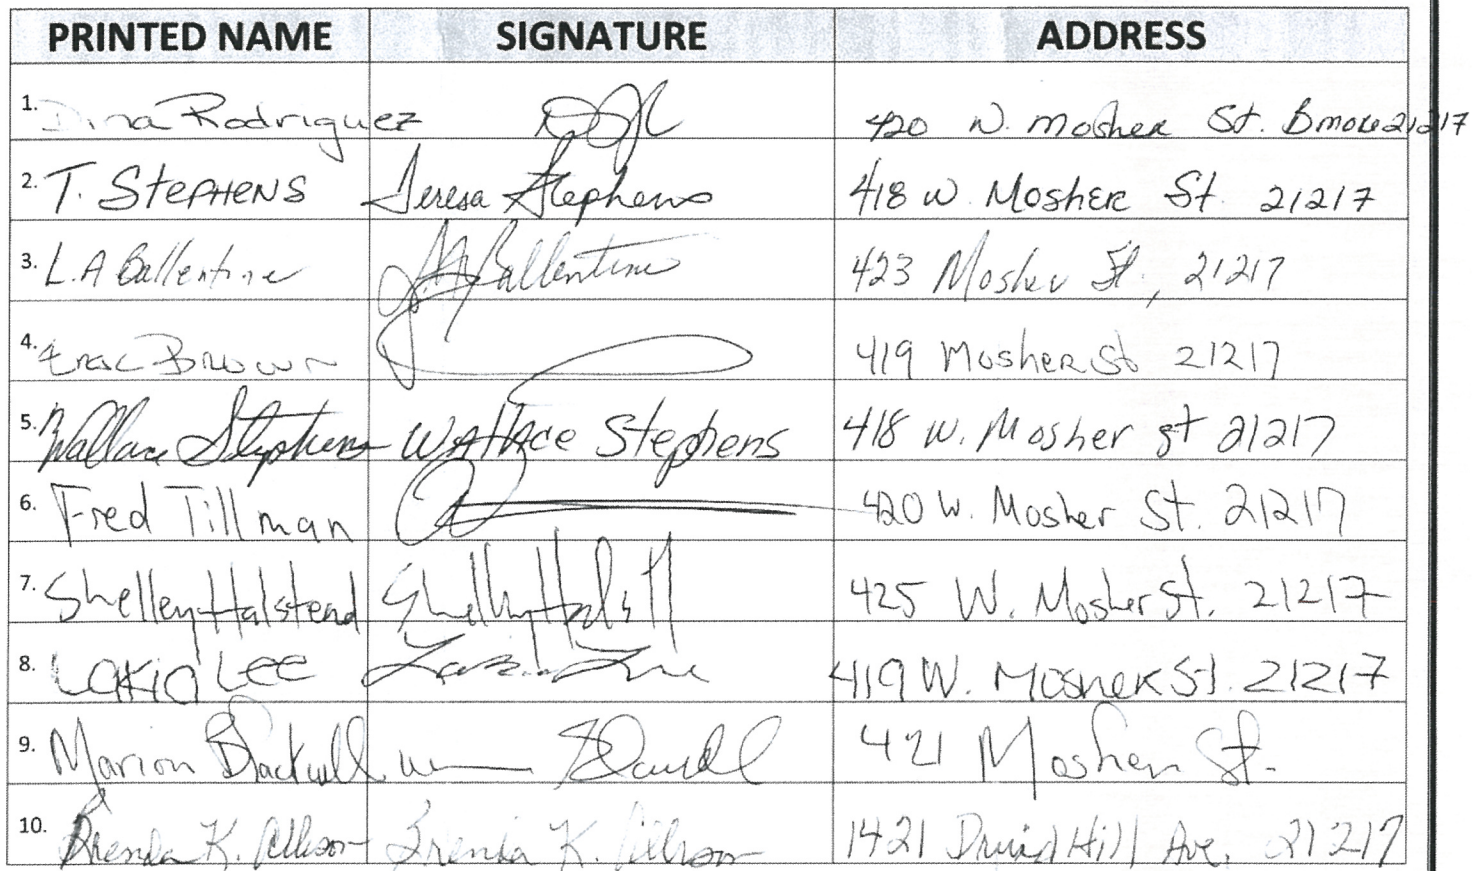 PRINTED NAME SIGNATURE ADDRESS
1. Dina Rodriguez 420 W. Mosher St. Bmore 21217
2. T. STEPHENS Teresa Stephens 418 W Mosher St. 21217
3. L.A Ballentine L.A. Ballentine 423 Mosher St, 21217
4. Eric Brown 419 Mosher St 21217
5. Wallace Stephens Wallace Stephens 418 W. Mosher st 21217
6. Fred Tillman 420 W. Mosher St. 21217
7. Shelley Halstead 425 W. Mosher St. 21217
8. Lakia LEE 419 W. Mosher St. 21217
9. Marion Blackwell 421 Mosher St.
10. Brenda K. Allison Brenda K. Allison 1421 Druid Hill Ave, 21217